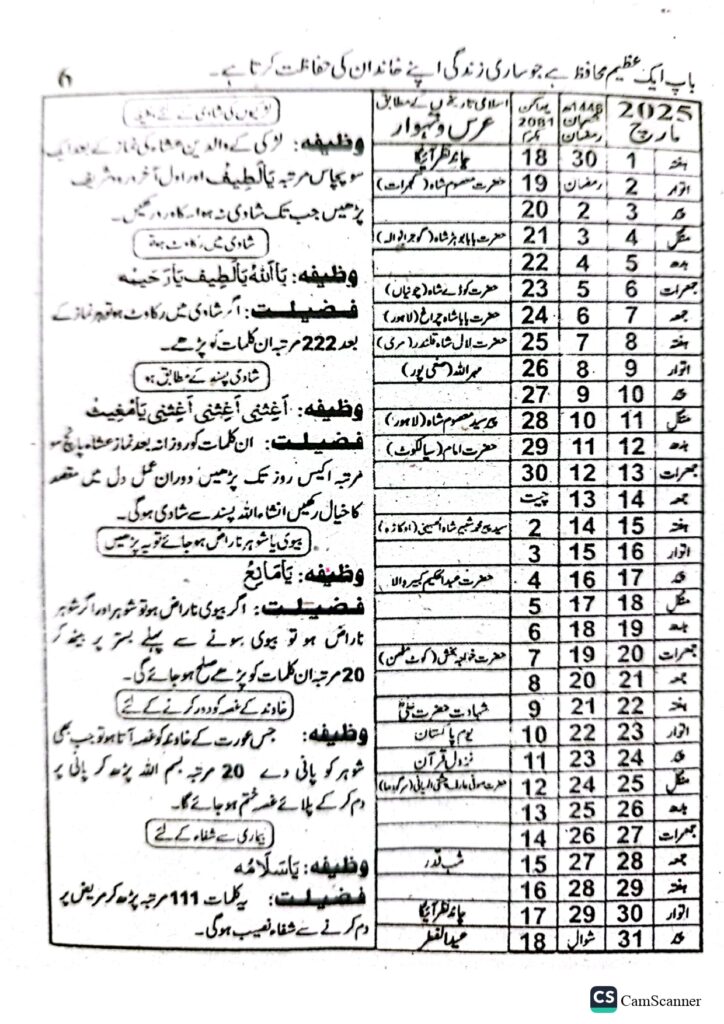 باپ ایک عظیم محافظ ہے جو ساری زندگی اپنے خاندان کی حفاظت کرتا ہے۔
6
2025 مارچ
1446ھ شعبان رمضان
2081
اسلامی تاریخوں کے مطابق عرس و تہوار
ہفتہ 1 30 18 چاند نظر آئیگا
اتوار 2 رمضان 19 حضرت معصوم شاہ (گجرات)
پیر 3 2 20
منگل 4 3 21 حضرت بابا بوہڑ شاہ (گوجرانوالہ)
بدھ 5 4 22
جمعرات 6 5 23 حضرت کوڈے شاہ (چونیاں)
جمعہ 7 6 24 حضرت بابا شاہ چراغ (لاہور)
ہفتہ 8 7 25 حضرت لال شاہ قلندر (مری)
اتوار 9 8 26 مہر اللہ (صفی پور)
پیر 10 9 27
منگل 11 10 28 پیر سید معصوم شاہ (لاہور)
بدھ 12 11 29 حضرت امام (سیالکوٹ)
جمعرات 13 12 30
جمعہ 14 13 چیت
ہفتہ 15 14 2 سید پیر محمد شبیر شاہ الحسینی (اوکاڑہ)
اتوار 16 15 3
پیر 17 16 4 حضرت عبدالحکیم کبیرہ والا
منگل 18 17 5
بدھ 19 18 6
جمعرات 20 19 7 حضرت خواجہ بخش (کوٹ مٹھن)
جمعہ 21 20 8
ہفتہ 22 21 9 شہادت حضرت علیؓ
اتوار 23 22 10 یوم پاکستان
پیر 24 23 11 نزول قرآن
منگل 25 24 12 حضرت صوفی عارف چشتی (سرگودھا)
بدھ 26 25 13
جمعرات 27 26 14
جمعہ 28 27 15 شب قدر
ہفتہ 29 28 16
اتوار 30 29 17 چاند نظر آئیگا
پیر 31 شوال 18 عیدالفطر
لڑکیوں کی شادی کے لئے وظیفہ
وظیفہ: لڑکی کے والدین عشاء کی نماز کے بعد ایک
سو پچاس مرتبہ یَالَطِیفُ اور اول آخر درود شریف
پڑھیں جب تک شادی نہ ہو اسکا ورد رکھیں۔
شادی میں رکاوٹ ہو تو
وظیفہ: یَااَللّٰہُ یَالَطِیفُ یَارَحِیمُ
فضیلت: اگر شادی میں رکاوٹ ہو تو ہر نماز کے
بعد 222 مرتبہ ان کلمات کو پڑھے۔
شادی پسند کے مطابق ہو
وظیفہ: اَغِثْنِی اَغِثْنِی اَغِثْنِی یَامُغِیثُ
فضیلت: ان کلمات کو روزانہ بعد نماز عشاء پانچ سو
مرتبہ اکیس روز تک پڑھیں دوران عمل دل میں مقصد
کا خیال رکھیں انشاءاللہ پسند سے شادی ہوگی۔
بیوی یا شوہر ناراض ہو جائے تو یہ پڑھیں
وظیفہ: یَامَانِعُ
فضیلت: اگر بیوی ناراض ہو تو شوہر اور اگر شوہر
ناراض ہو تو بیوی سونے سے پہلے بستر پر بیٹھ کر
20 مرتبہ ان کلمات کو پڑھے صلح ہو جائے گی۔
خاوند کے غصہ کو دور کرنے کے لئے
وظیفہ: جس عورت کے خاوند کو غصہ آتا ہو تو جب بھی
شوہر کو پانی دے 20 مرتبہ بسم اللہ پڑھ کر پانی پر
دم کر کے پلائے غصہ ختم ہو جائے گا۔
بیماری سے شفاء کے لئے
وظیفہ: یَاسَلَامُ
فضیلت: یہ کلمات 111 مرتبہ پڑھ کر مریض پر
دم کرنے سے شفاء نصیب ہوگی۔
CS CamScanner